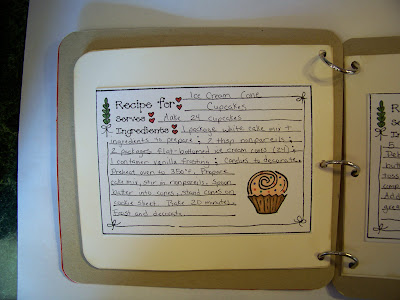 Recipe for Ice Cream Cone
Cupcakes
Serves Makes 24 cupcakes
Ingredients 1 package white cake mix +
ingredients to prepare; 2 tbsp nonpareils;
2 packages flat-bottomed ice cream cones (24);
1 container vanilla frosting; Candies to decorate.
Preheat oven to 350°F. Prepare
cake mix, stir in nonpareils. Spoon
batter into cones, stand cones on
cookie sheet. Bake 20 minutes.
Frost and decorate.